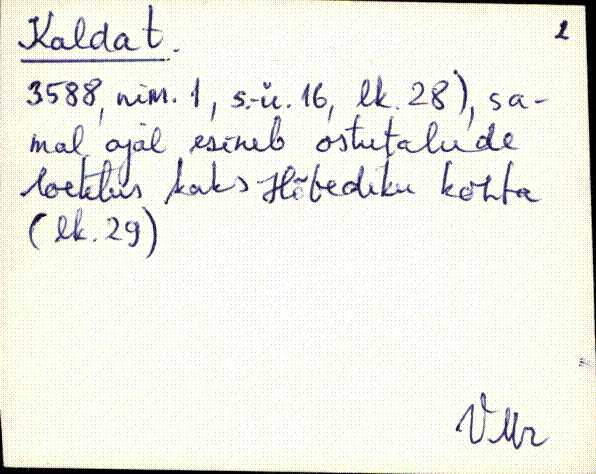 Kalda t. 2
3588, nim. 1, s.-ü. 16, lk. 28), sa-
mal ajal esineb ostutalude
loetelus kaks Hõbediku kohta
(lk. 29)
VMr